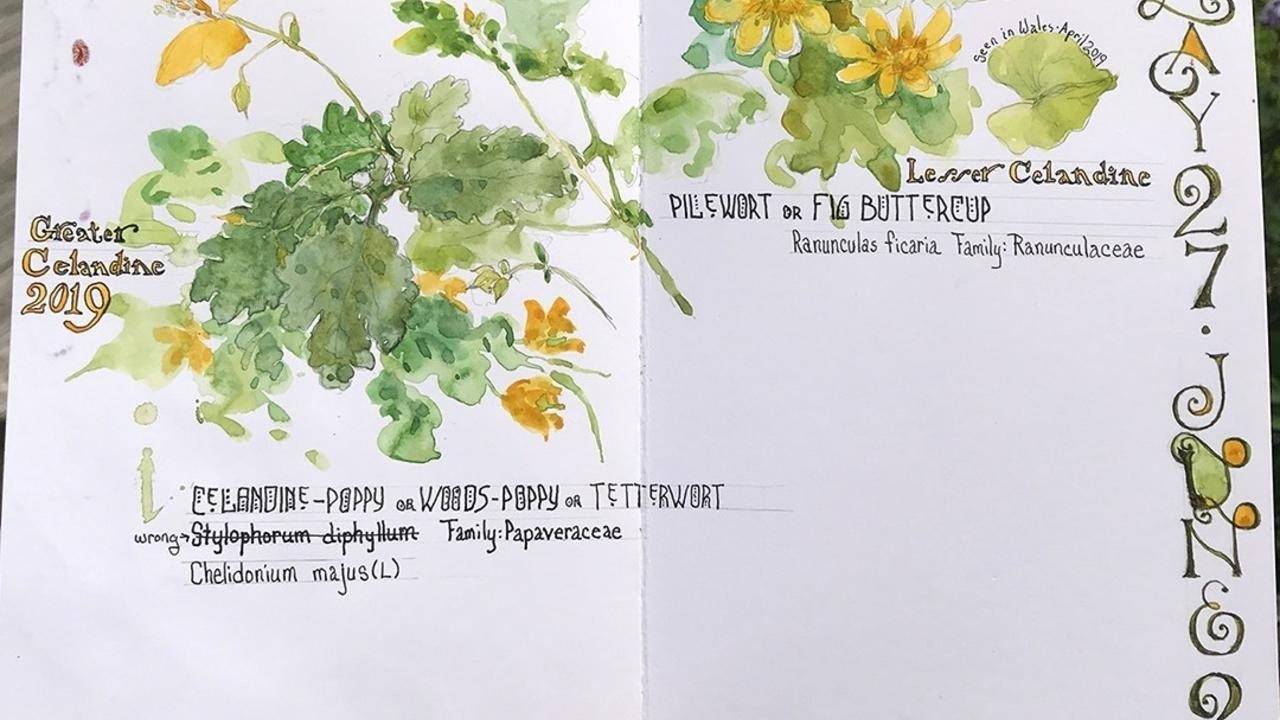 Greater
Celandine
2019
CELANDINE-POPPY OR WOODS-POPPY OR TETTERWORT
wrong→Stylophorum diphyllum Family:Papaveraceae
Chelidonium majus(L)
Seen in Wales·April 2019
Lesser Celandine
PILEWORT OR FIG BUTTERCUP
Ranunculas ficaria Family:Ranunculaceae
AY 27·JUNE